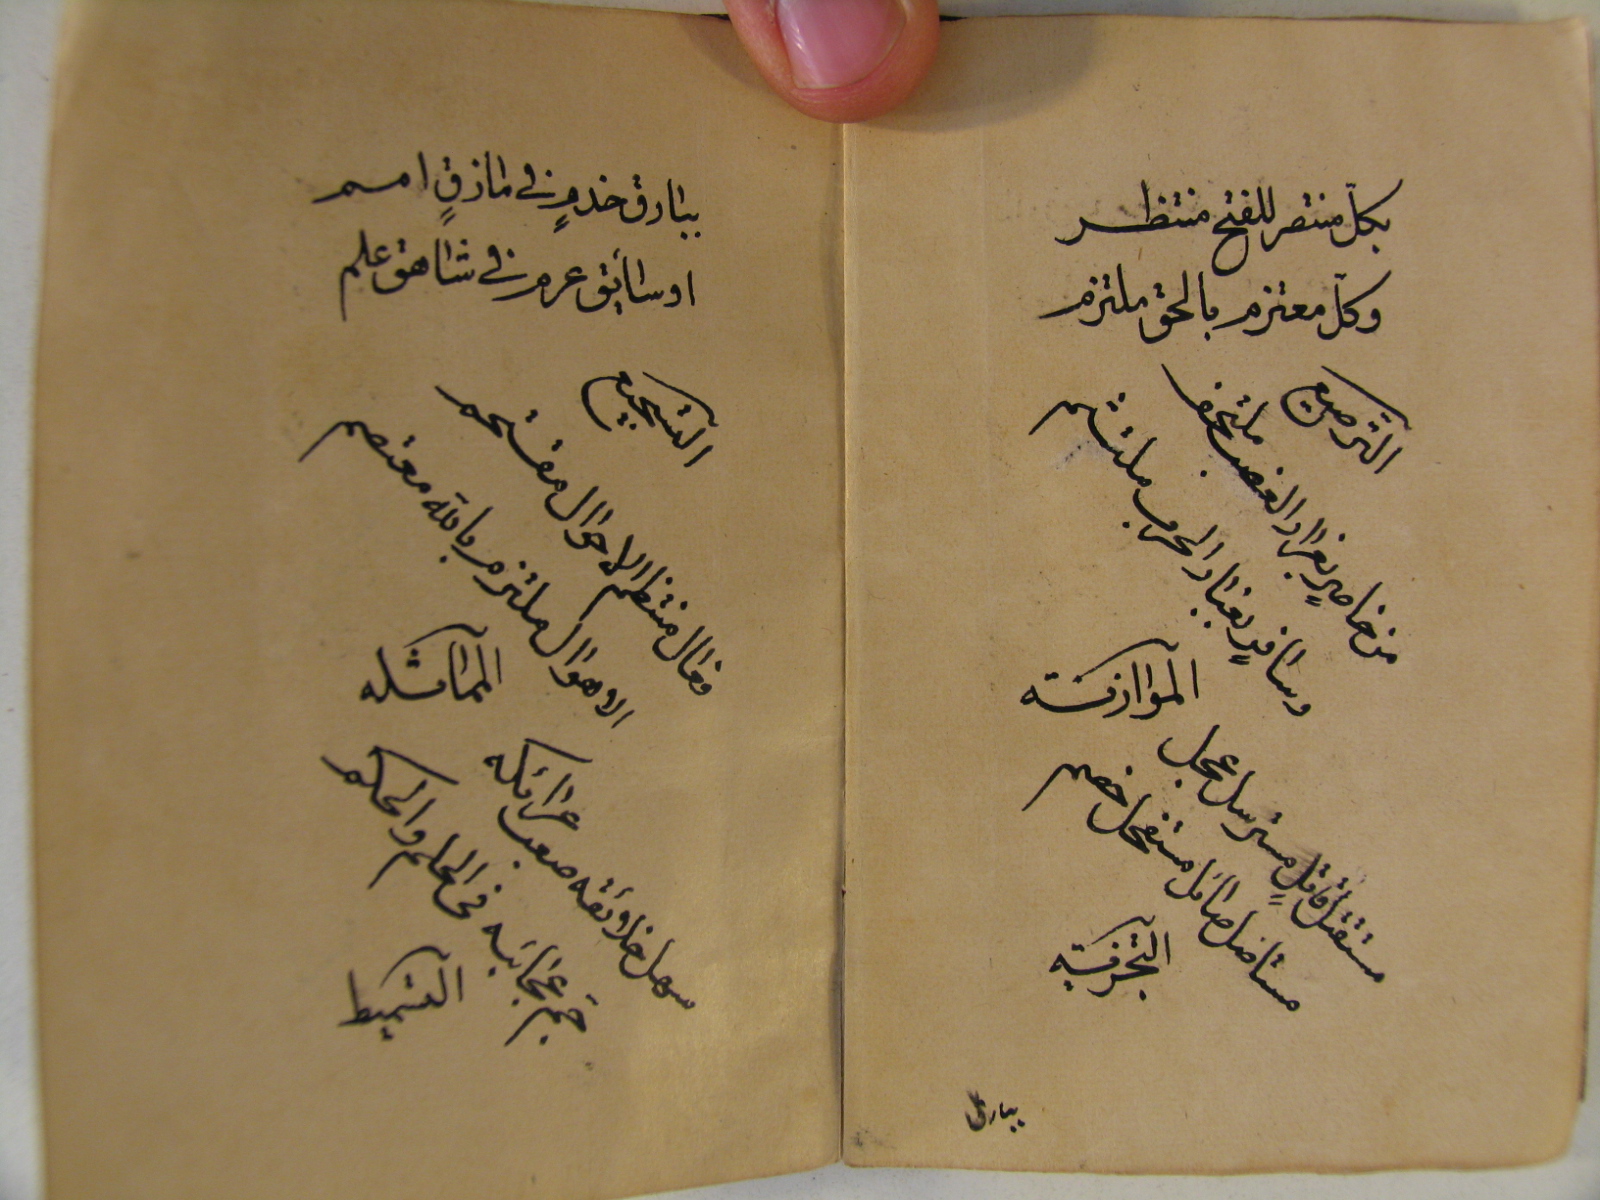 بكلّ منتصر للفتح منتظر
وكلّ معتزم بالحق ملتزم
الترصيع
من خاصرٍ بغرار العضب ملتحف
وسافرٍ بغبار الحرب ملتثم
الموازنته
مستقتل قاتلٍ مسترسل عجل
مستاصل صائل مستفحل خصم
التجزئية
ببارق
ببارق خذمٍ في مازقٍ امم
او سايق عرم في شاهق علم
التسجيع
فعال منتظم الاحوال مقتحم
الاهوال ملتزم بالله معتصم
المماثله
سهل خلائقه صعب عرائكه
جم عجائبه فى الحلم والحكم
التسميط